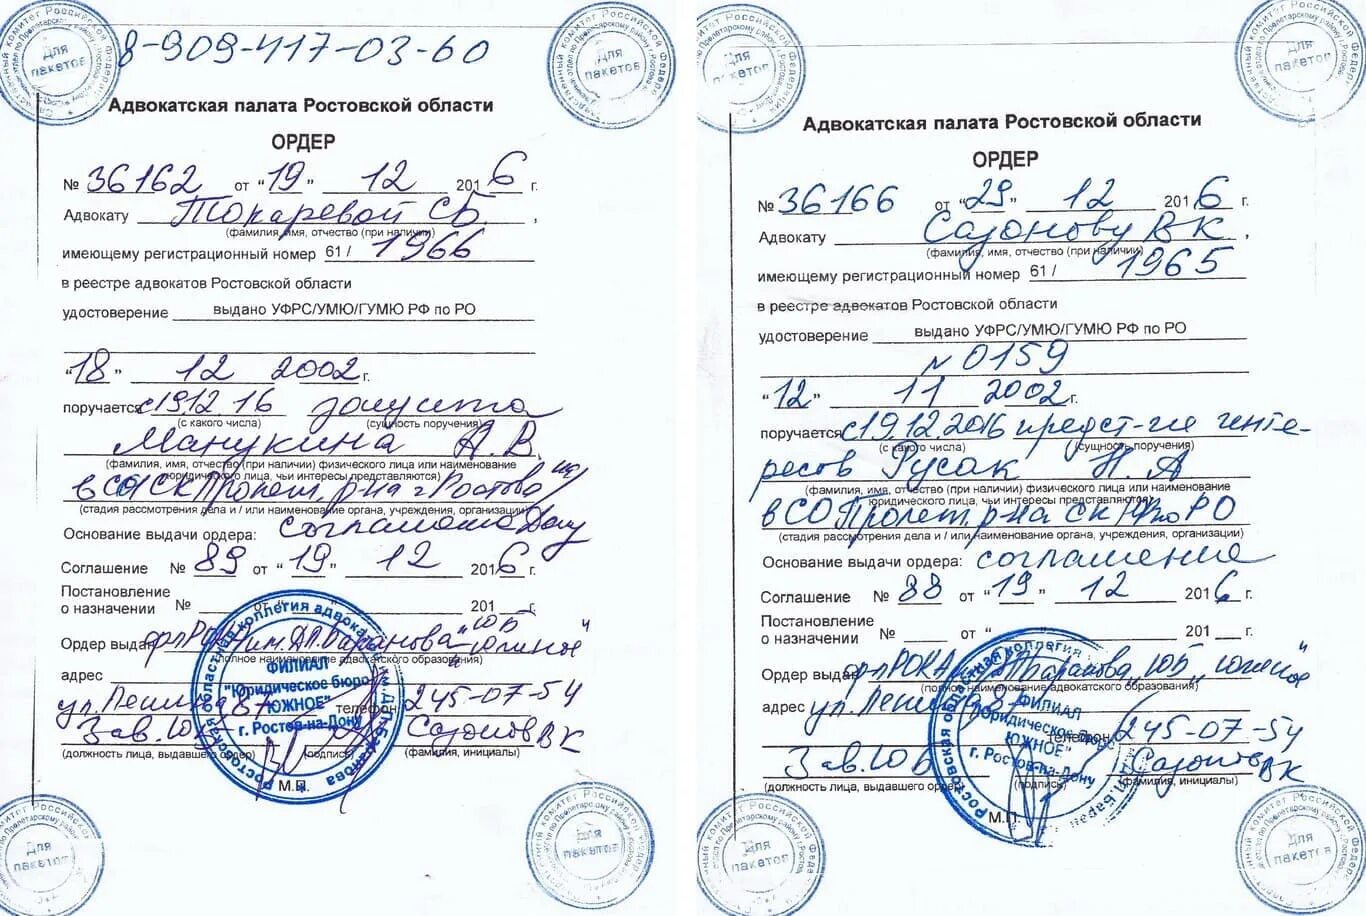 8-909-417-03-60
Адвокатская палата Ростовской области
ОРДЕР
№ 36162 от "19" 12 2016 г.
Адвокату Токаревой С.Б.,
(фамилия, имя, отчество (при наличии)
имеющему регистрационный номер 61/ 1966
в реестре адвокатов Ростовской области
удостоверение выдано УФРС/УМЮ/ГУМЮ РФ по РО
"18" 12 2002 г.
поручается с 19.12.16 защита
(с какого числа) (сущность поручения)
Манукина А.В.
(фамилия, имя, отчество (при наличии) физического лица или наименование
юридического лица, чьи интересы представляются)
в СО СК Пролет. р-на г. Ростова
(стадия рассмотрения дела и / или наименование органа, учреждения, организации)
Основание выдачи ордера: соглашение
Соглашение № 89 от "19" 12 2016 г.
Постановление
о назначении № от " 201 г.
Ордер выдан "Южное"
(полное наименование адвокатского образования)
адрес
ул. Ленина телефон 245-07-54
Зав. ЮБ Сазонов ВК
(должность лица, выдавшего ордер) (подпись) (фамилия, инициалы)
М.П.
ФИЛИАЛ
"Юридическое бюро
ЮЖНОЕ"
г. Ростов-на-Дону
Для
пакетов
Для
пакетов
Для
пакетов
Для
пакетов
Адвокатская палата Ростовской области
ОРДЕР
№ 36166 от "29" 12 2016 г.
Адвокату Сазонову ВК,
(фамилия, имя, отчество (при наличии)
имеющему регистрационный номер 61/ 1965
в реестре адвокатов Ростовской области
удостоверение выдано УФРС/УМЮ/ГУМЮ РФ по РО
№ 0159
"12" 11 2002 г.
поручается с 19.12.2016 предст-ие инте-
(с какого числа) (сущность поручения)
ресов Русак Н.А
(фамилия, имя, отчество (при наличии) физического лица или наименование
юридического лица, чьи интересы представляются)
в СО Пролет р-на СК РФ по РО
(стадия рассмотрения дела и / или наименование органа, учреждения, организации)
Основание выдачи ордера: соглашение
Соглашение № 88 от "19" 12 2016 г.
Постановление
о назначении № от " 201 г.
Ордер выдан Баранова "ЮБ Южное"
(полное наименование адвокатского образования)
адрес ул. Ленина
телефон 245-07-54
Зав. ЮБ Сазонов ВК
(должность лица, выдавшего ордер) (подпись) (фамилия, инициалы)
М.П.
ФИЛИАЛ
"Юридическое бюро
ЮЖНОЕ"
г. Ростов-на-Дону
Для
пакетов
Для
пакетов
Для
пакетов
Для
пакетов